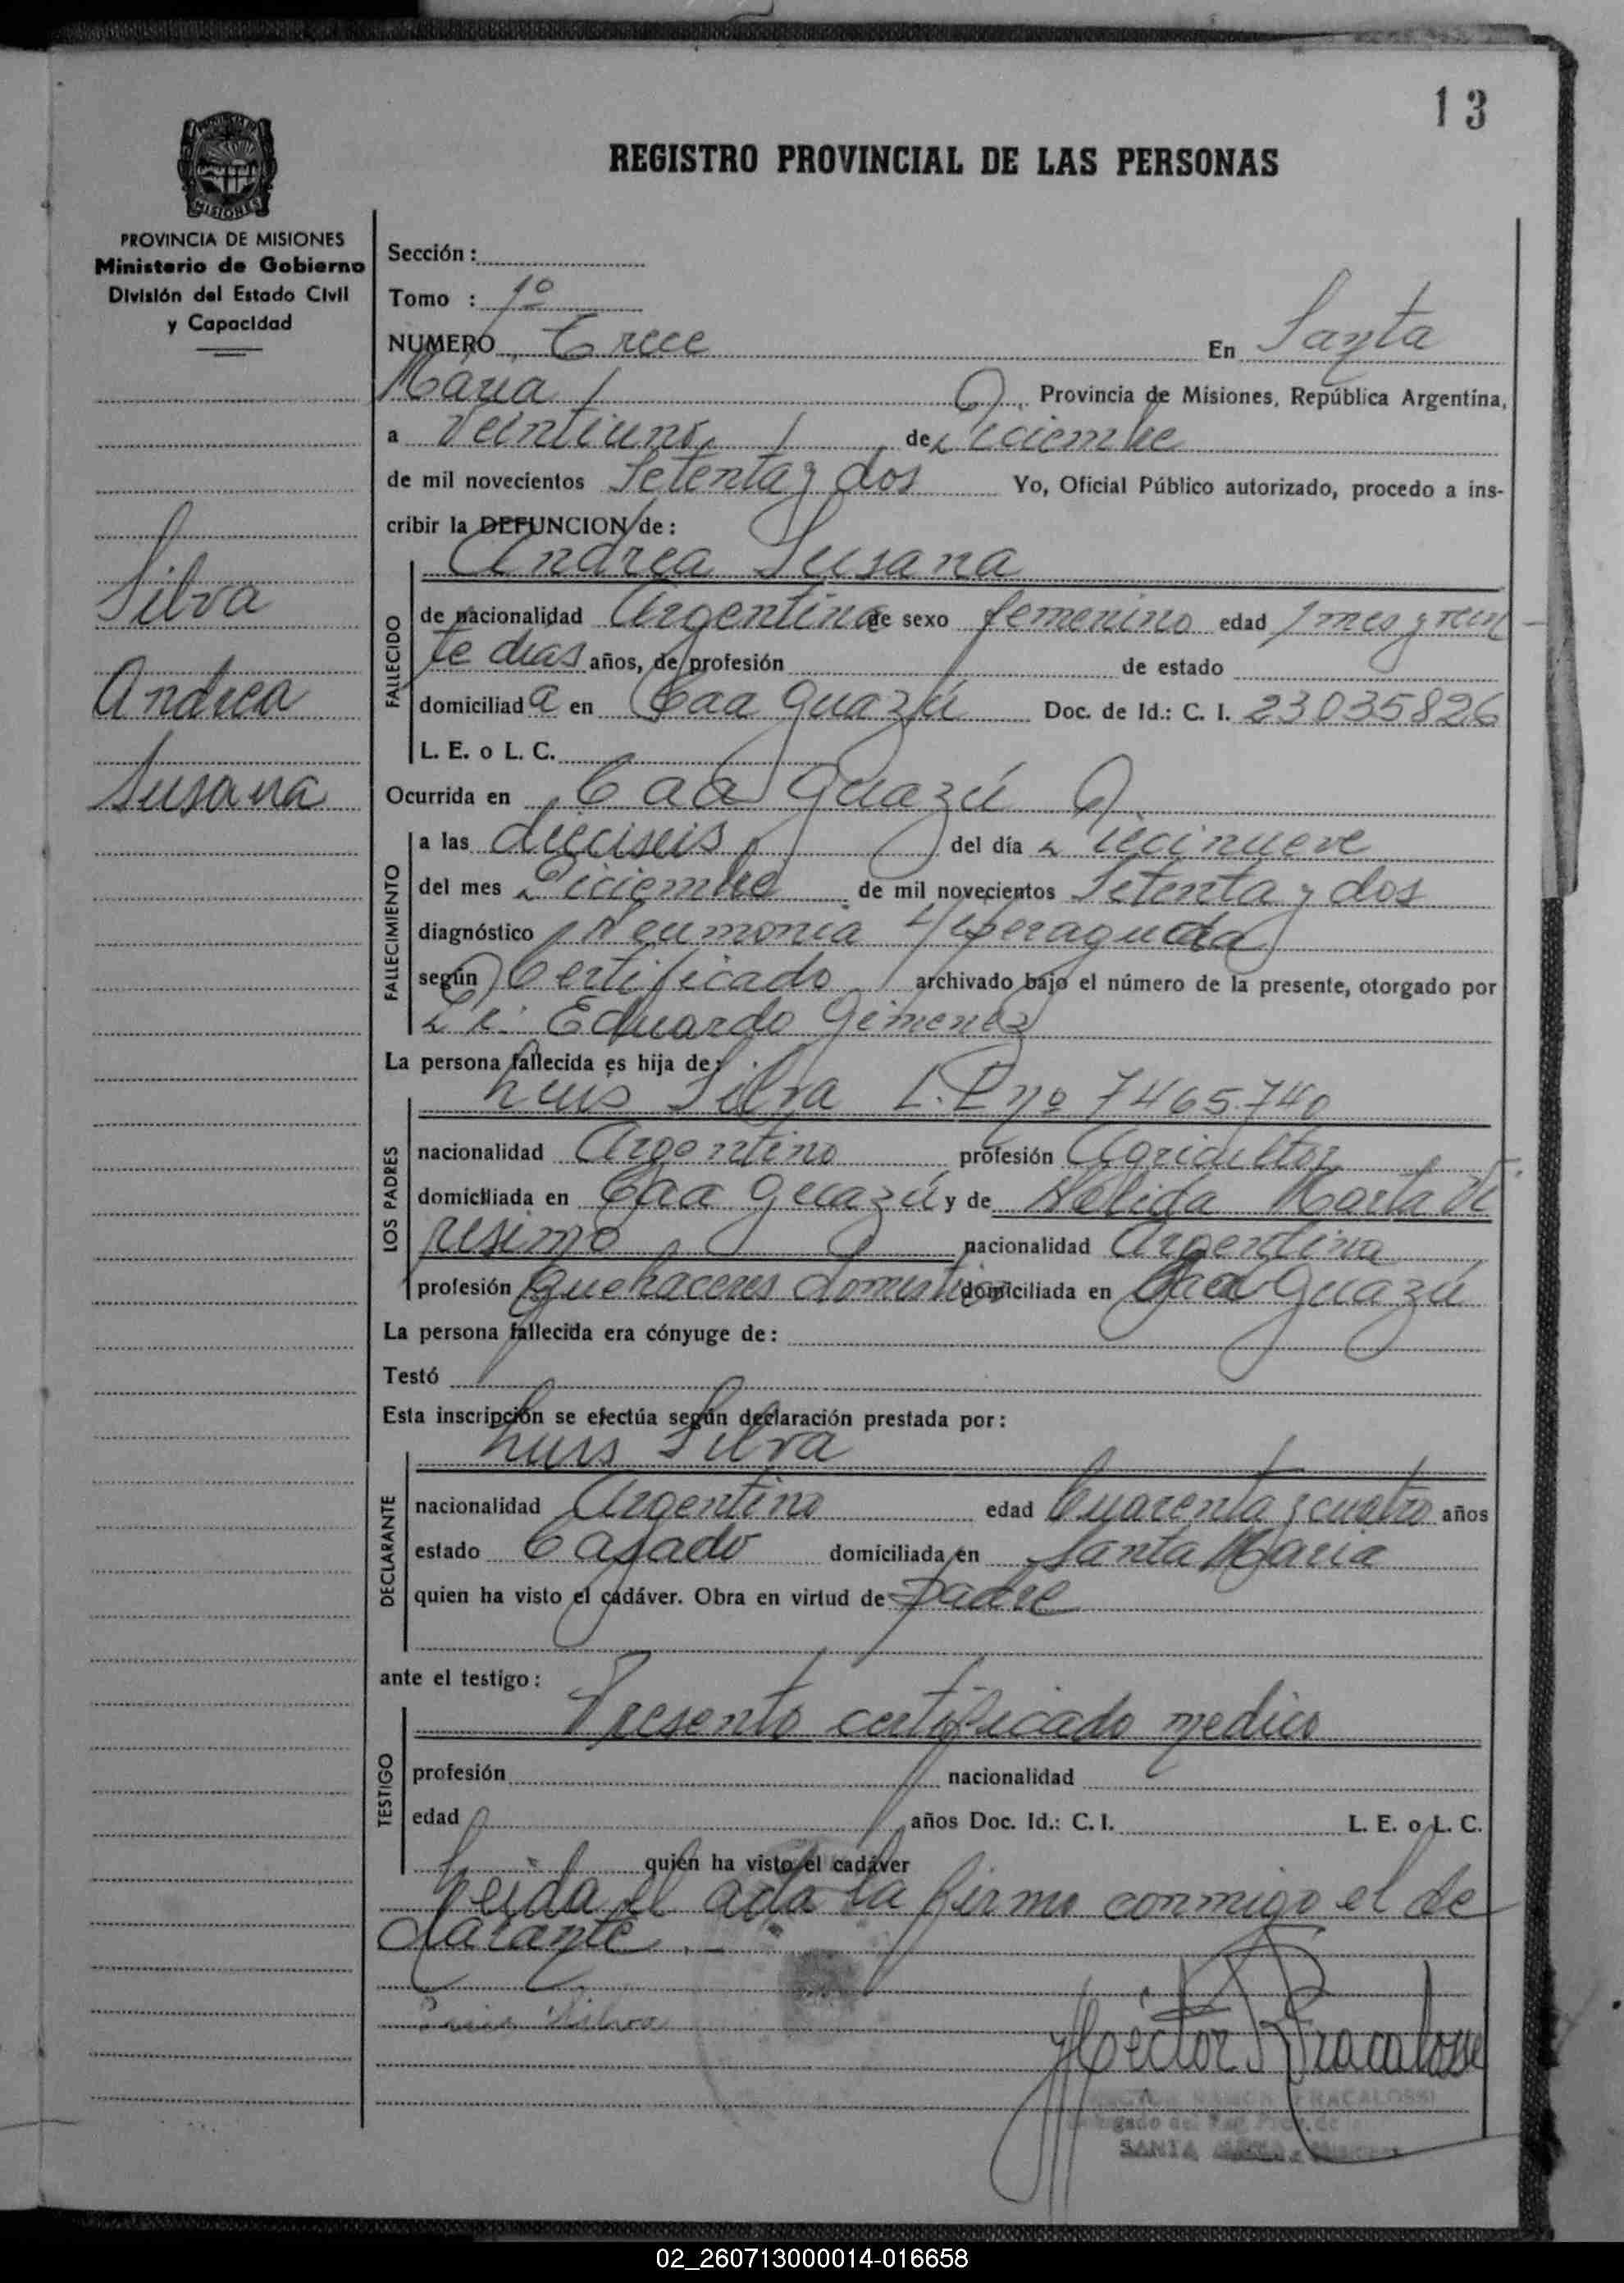 13
REGISTRO PROVINCIAL DE LAS PERSONAS
MISIONES
PROVINCIA DE MISIONES
Ministerio de Gobierno
División del Estado Civil
y Capacidad
Silva
Andrea
Susana
Sección :
Tomo : 1º
NUMERO Trece En Santa
Maria Provincia de Misiones, República Argentina,
a Veintiuno de Diciembre
de mil novecientos Setenta y dos Yo, Oficial Público autorizado, procedo a ins-
cribir la DEFUNCION de :
Andrea Susana
FALLECIDO
de nacionalidad Argentina de sexo femenino edad 1 mes y vein
te dias años, de profesión de estado
domiciliad a en Caa Guazú Doc. de Id.: C. I. 23035826
L. E. o L. C.
Ocurrida en Caa Guazú
FALLECIMIENTO
a las dieciseis del día Diecinueve
del mes Diciembre de mil novecientos Setenta y dos
diagnóstico Neumonia Hiperaguda
según Certificado archivado bajo el número de la presente, otorgado por
Dr: Eduardo Gimenez
La persona fallecida es hija de:
Luis Silva L.E nº 7465740
LOS PADRES
nacionalidad Argentino profesión Agricultor
domiciliada en Caa Guazú y de Nelida Marta
nacionalidad Argentina
profesión Quehaceres domesticos domiciliada en Caa Guazú
La persona fallecida era cónyuge de :
Testó
Esta inscripción se efectúa según declaración prestada por :
Luis Silva
DECLARANTE
nacionalidad Argentino edad Cuarenta y cuatro años
estado Casado domiciliada en Santa Maria
quien ha visto el cadáver. Obra en virtud de padre
ante el testigo :
Presento certificado medico
TESTIGO
profesión nacionalidad
edad años Doc. Id.: C. I. L. E. o L. C.
quien ha visto el cadáver
Leida el acta la firma conmigo el de
clarante.-
Luis Silva
Héctor R Fracalossi
FRACALOSSI
SANTA
02_260713000014-016658